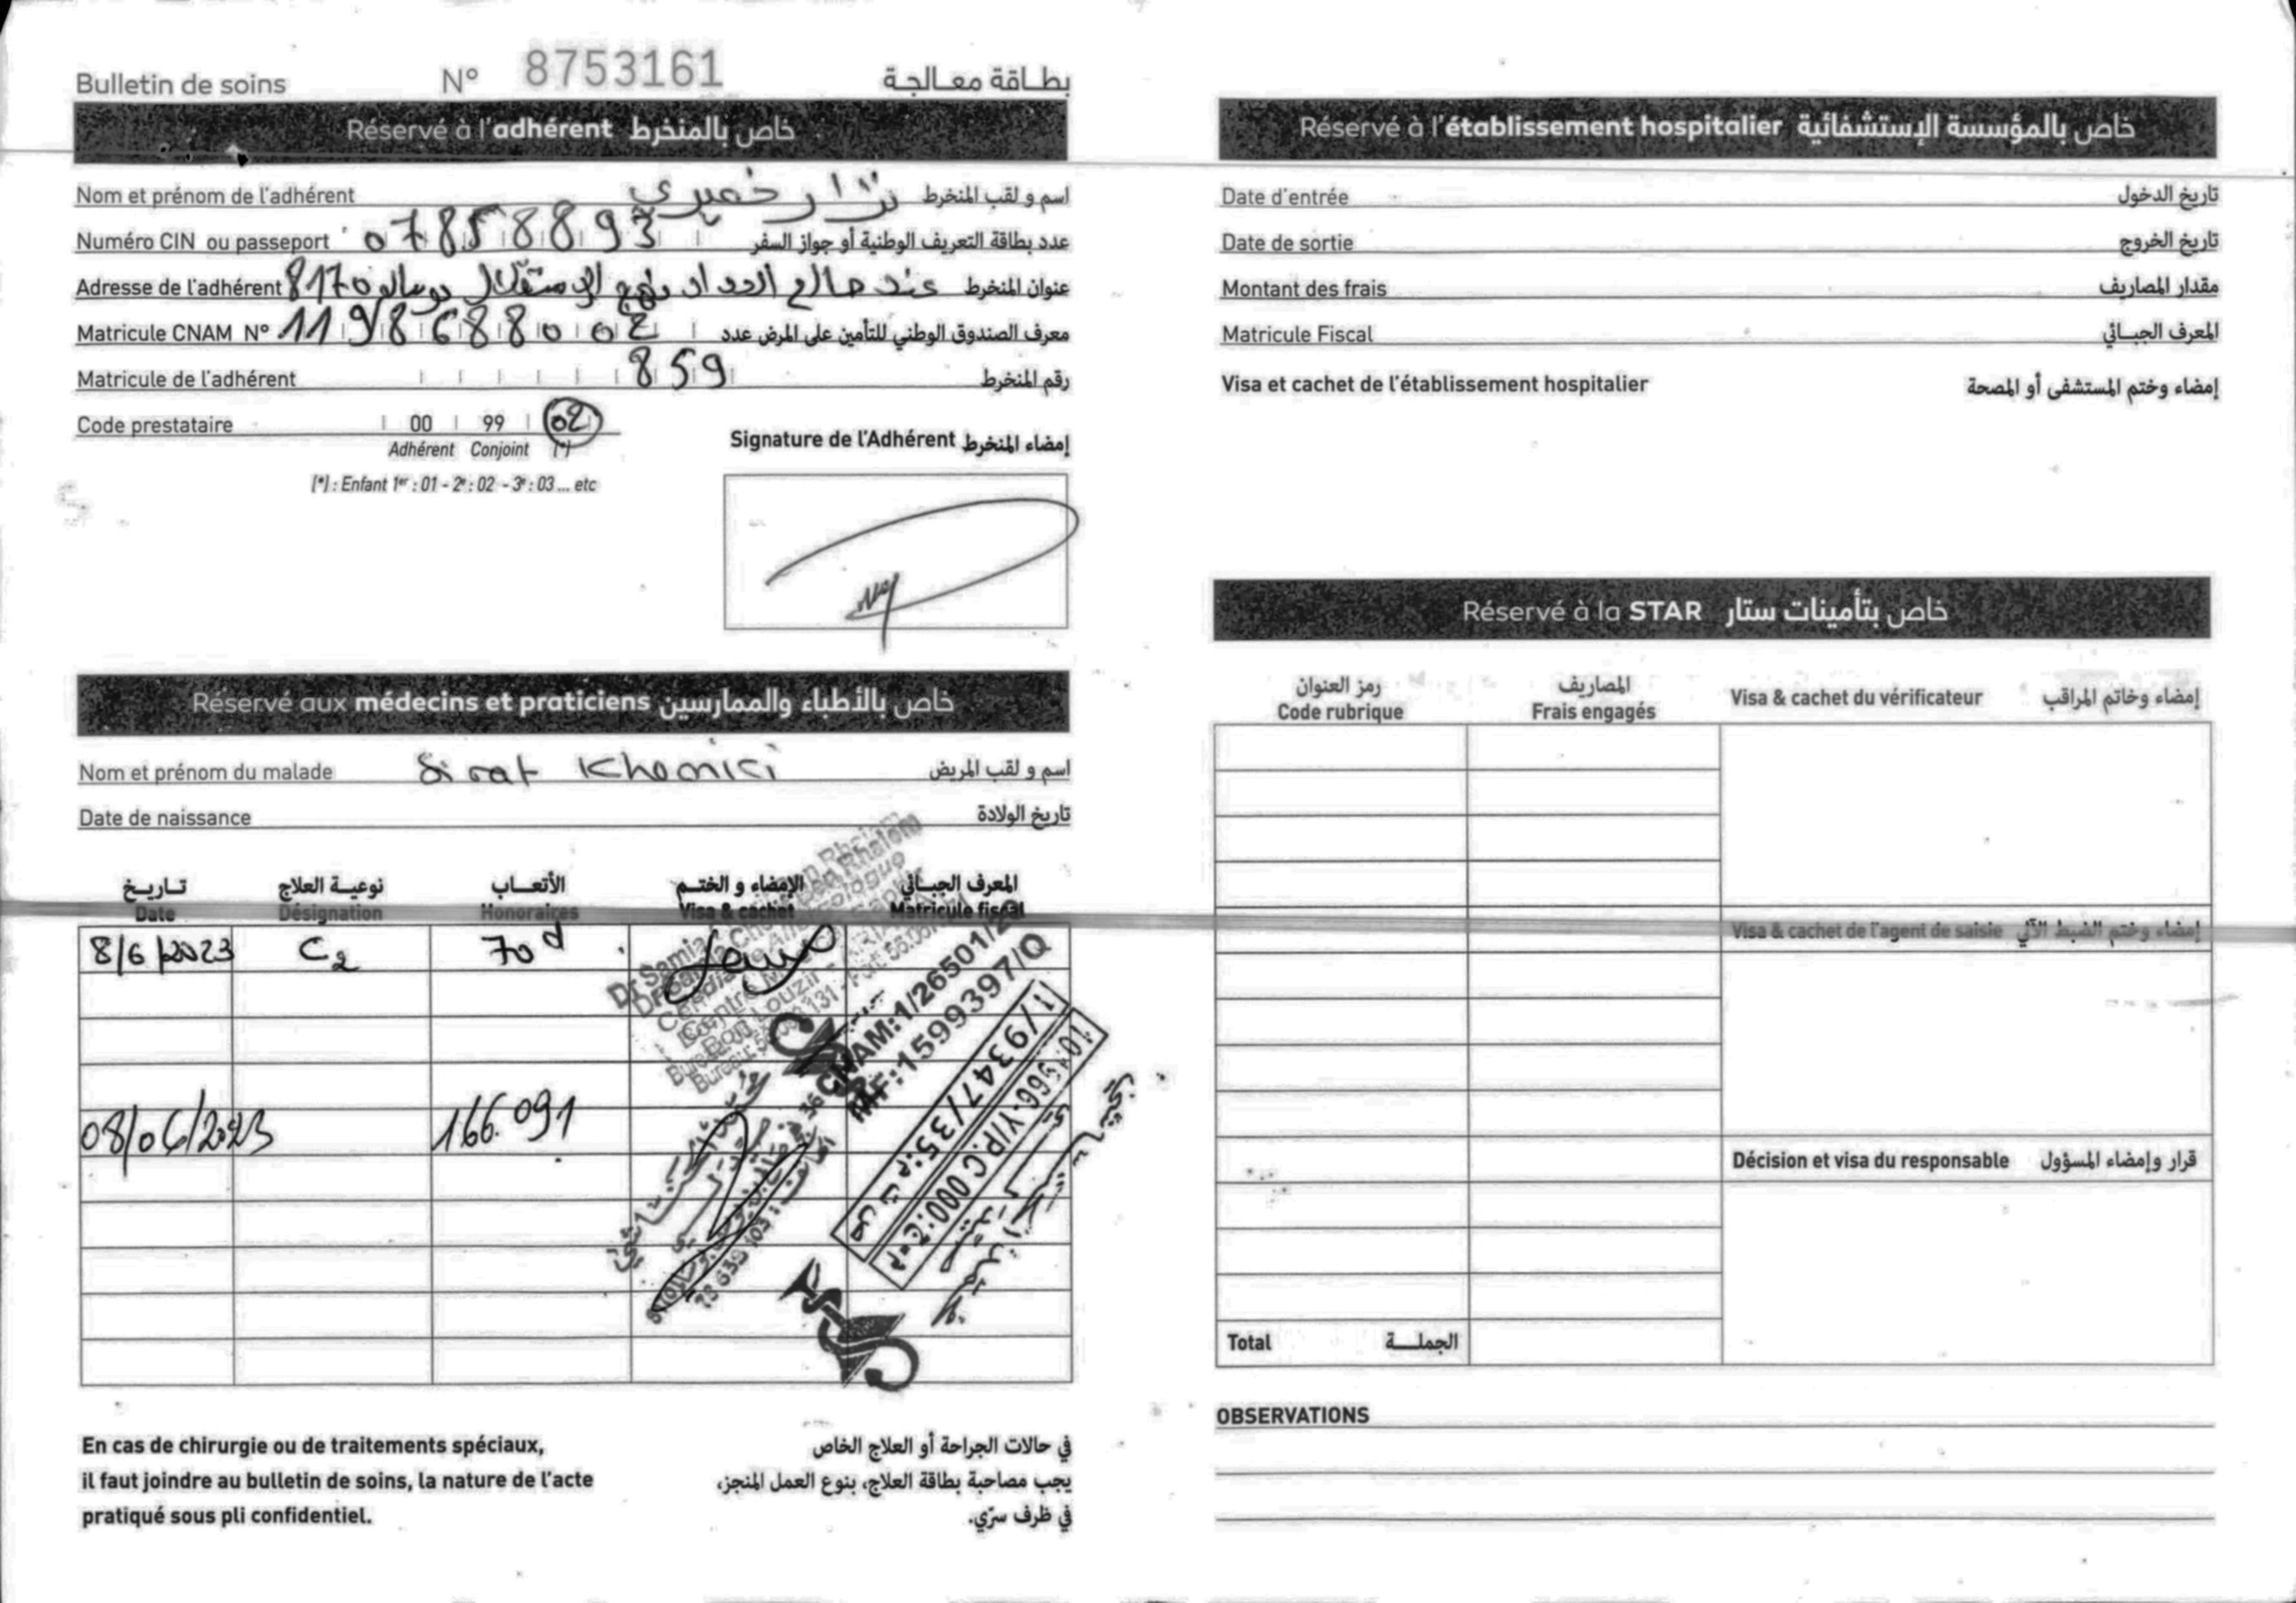 Bulletin de soins N° 8753161 بطاقة معالجة
Réservé à l'adhérent خاص بالمنخرط
Nom et prénom de l'adhérent نزار خميري اسم و لقب المنخرط
Numéro CIN ou passeport 07858893 عدد بطاقة التعريف الوطنية أو جواز السفر
Adresse de l'adhérent عند صالح الحداد نهج الإستقلال بوسالم 8170 عنوان المنخرط
Matricule CNAM N° 1198688002 معرف الصندوق الوطني للتأمين على المرض عدد
Matricule de l'adhérent 859 رقم المنخرط
Code prestataire 00 99 02
Adhérent Conjoint (*)
(*) : Enfant 1er : 01 - 2e : 02 - 3e : 03 ... etc
Signature de l'Adhérent إمضاء المنخرط
Réservé aux médecins et praticiens خاص بالأطباء والممارسين
Nom et prénom du malade Sirat Khemiri اسم و لقب المريض
Date de naissance تاريخ الولادة
تاريخ نوعية العلاج الأتعاب الإمضاء و الختم المعرف الجبائي
Date Désignation Honoraires Visa & cachet Matricule fiscal
8/6/2023 C2 70d
Dr Samia
CNAM:1/26501/
MF:1599397/Q
08/06/2023 166.091
1/79347/35
En cas de chirurgie ou de traitements spéciaux,
il faut joindre au bulletin de soins, la nature de l'acte
pratiqué sous pli confidentiel.
في حالات الجراحة أو العلاج الخاص
يجب مصاحبة بطاقة العلاج، بنوع العمل المنجز،
في ظرف سرّي.
Réservé à l'établissement hospitalier خاص بالمؤسسة الإستشفائية
Date d'entrée تاريخ الدخول
Date de sortie تاريخ الخروج
Montant des frais مقدار المصاريف
Matricule Fiscal المعرف الجبائي
Visa et cachet de l'établissement hospitalier إمضاء وختم المستشفى أو المصحة
Réservé à la STAR خاص بتأمينات ستار
رمز العنوان المصاريف
Code rubrique Frais engagés Visa & cachet du vérificateur إمضاء وخاتم المراقب
Visa & cachet de l'agent de saisie إمضاء وختم الضبط الآلي
Décision et visa du responsable قرار وإمضاء المسؤول
Total الجملة
OBSERVATIONS